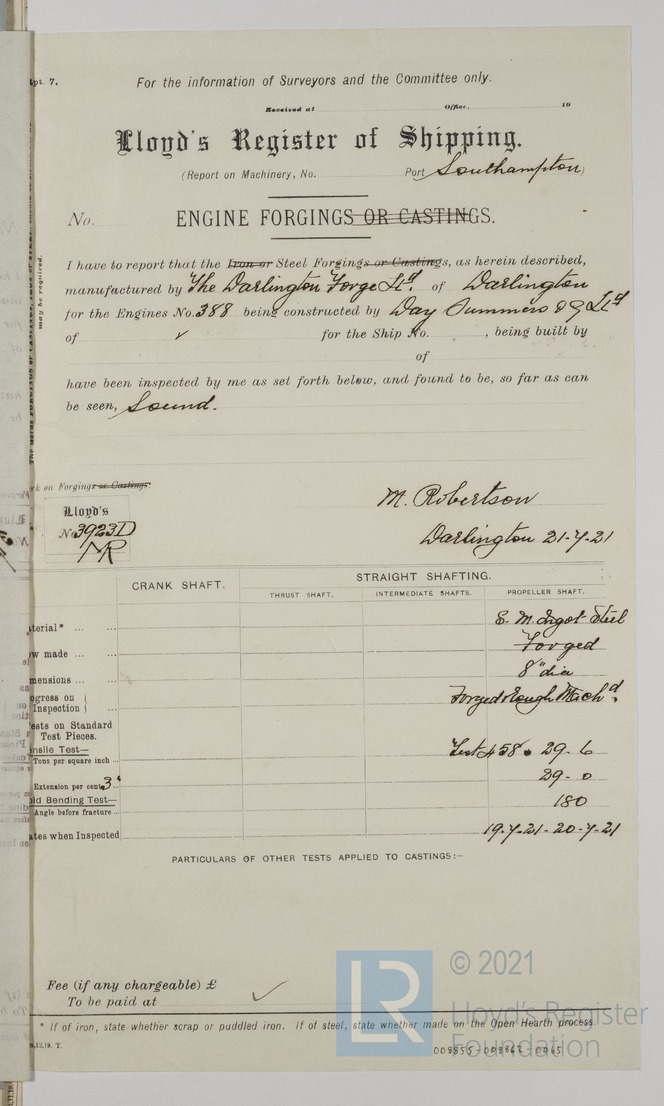 pt. 7.
For the information of Surveyors and the Committee only.
Received at Office, 19
Lloyd's Register of Shipping.
(Report on Machinery, No. Port Southampton)
No. ENGINE FORGINGS OR CASTINGS.
may be required.
I have to report that the Iron or Steel Forgings or Castings, as herein described,
manufactured by The Darlington Forge Ltd. of Darlington
for the Engines No. 388 being constructed by Day Summers & Co Ltd
of ✓ for the Ship No. , being built by
of
have been inspected by me as set forth below, and found to be, so far as can
be seen, Sound.
k on Forgings or Castings.
Lloyd's
No 3923D
MR
M. Robertson
Darlington 21-7-21
CRANK SHAFT.
STRAIGHT SHAFTING.
THRUST SHAFT. INTERMEDIATE SHAFTS. PROPELLER SHAFT.
terial* ... ... S. M. Ingot Steel
w made ... ... Forged
mensions ... ... 8" dia
ogress on
Inspection Forged & Rough Mach'd.
ests on Standard
Test Pieces.
nsile Test—
Tons per square inch ... Test 458. 29-6
Extension per cent. 3" 29-0
ld Bending Test—
Angle before fracture ... 180
ates when Inspected 19-7-21-20-7-21
PARTICULARS OF OTHER TESTS APPLIED TO CASTINGS:—
Fee (if any chargeable) £
To be paid at ✓
© 2021
LR
Lloyd's Register
Foundation
* If of iron, state whether scrap or puddled iron. If of steel, state whether made on the Open Hearth process.
,12,19. T.
008855-008862-0065